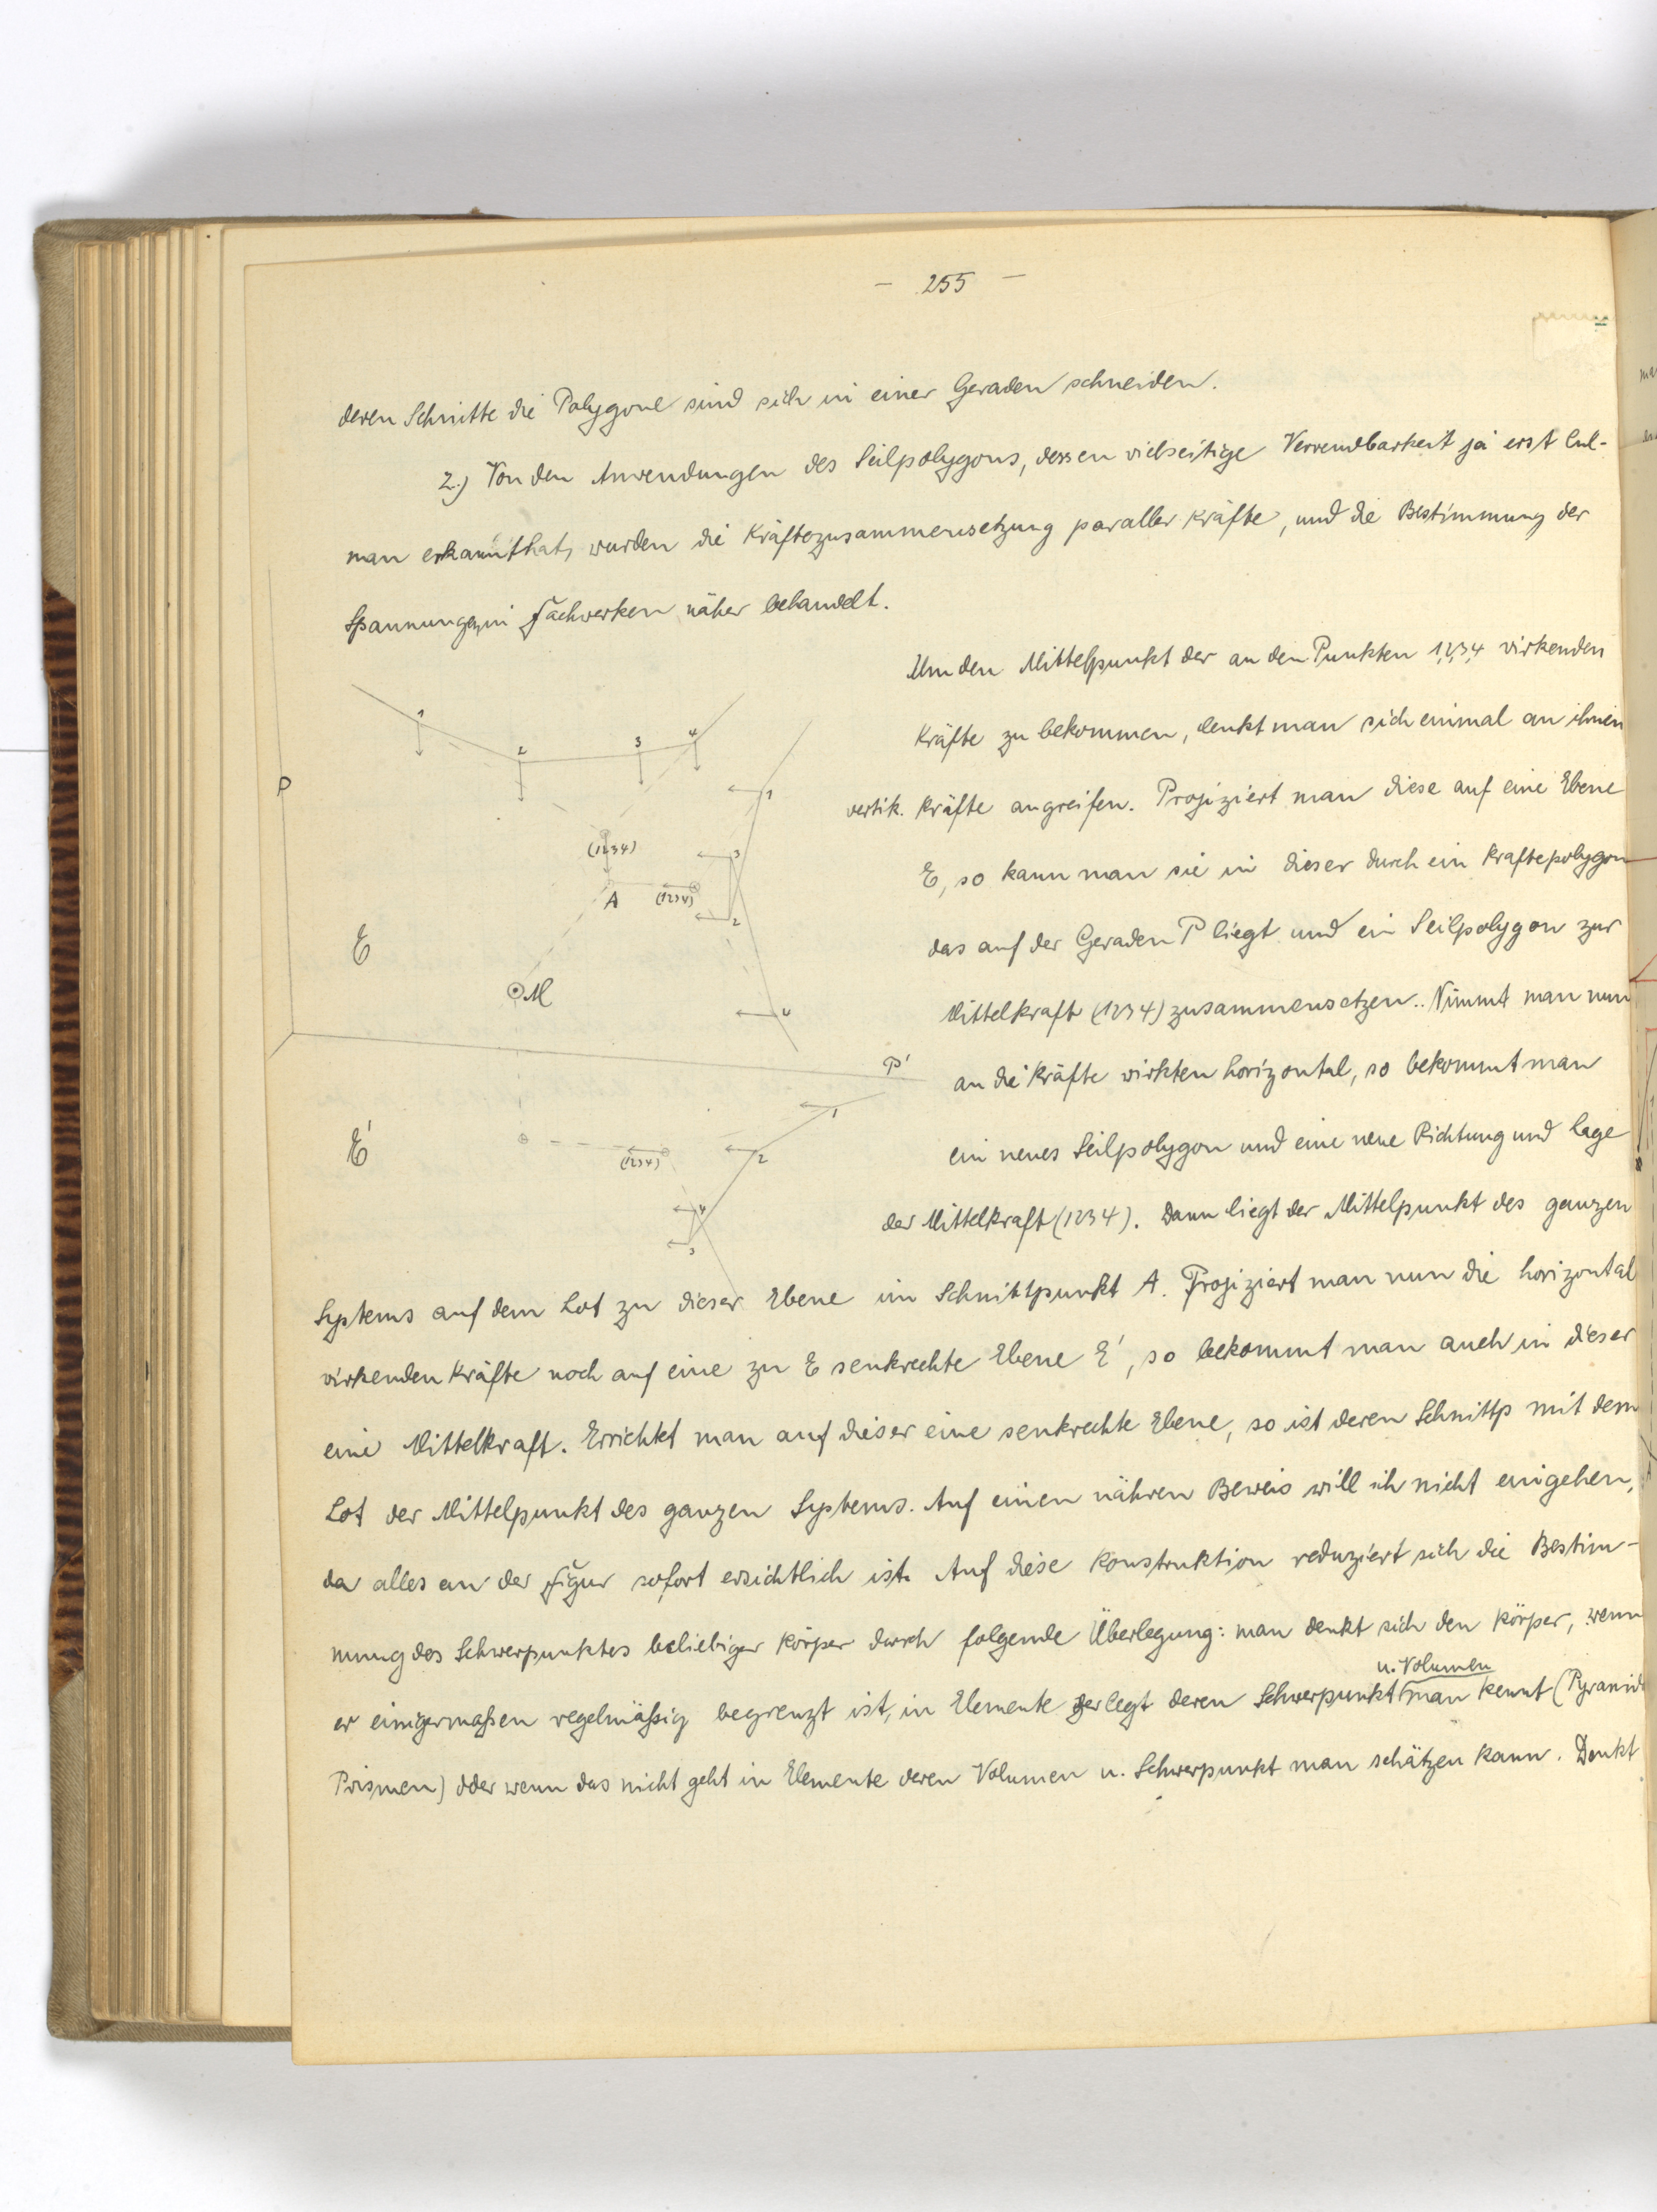 — 255 —
deren Schnitte die Polygone sind sich in einer Geraden schneiden.
2.) Von den Anwendungen des Seilpolygons, dessen vielseitige Verwendbarkeit ja erst Cul-
man erkannt hat, wurden die Kräftezusammensetzung paraller Kräfte, und die Bestimmung der
Spannungen in Fachwerken näher behandelt.
Um den Mittelpunkt der an den Punkten 1,2,3,4 wirkenden
Kräfte zu bekommen, denkt man sich einmal an ihnen
vertik. Kräfte angreifen. Projiziert man diese auf eine Ebene
E, so kann man sie in dieser durch ein Kraftepolygon
das auf der Geraden P liegt und ein Seilpolygon zur
Mittelkraft (1234) zusammensetzen.. Nimmt man nun
an die Kräfte wirkten horizontal, so bekommt man
ein neues Seilpolygon und eine neue Richtung und Lage
der Mittelkraft (1234). Dann liegt der Mittelpunkt des ganzen
Systems auf dem Lot zu dieser Ebene im Schnittpunkt A. Projiziert man nun die horizontal
wirkenden Kräfte noch auf eine zu E senkrechte Ebene E', so bekommt man auch in dieser
eine Mittelkraft. Errichtet man auf dieser eine senkrechte Ebene, so ist deren Schnittp mit dem
Lot der Mittelpunkt des ganzen Systems. Auf einen nähren Beweis will ich nicht eingehen,
da alles an der Figur sofort ersichtlich ist. Auf diese Konstruktion reduziert sich die Bestim-
mung des Schwerpunktes beliebiger Körper durch folgende Überlegung: man denkt sich den Körper, wenn
u. Volumen
er einigermaßen regelmäßig begrenzt ist, in Elemente zerlegt deren Schwerpunkt man kennt (Pyramide
Prismen) oder wenn das nicht geht in Elemente deren Volumen u. Schwerpunkt man schätzen kann. Denkt
1
2
3
4
P
1
(1234)
3
A
(1234)
2
E
M
4
P'
1
E'
(1234)
2
4
3